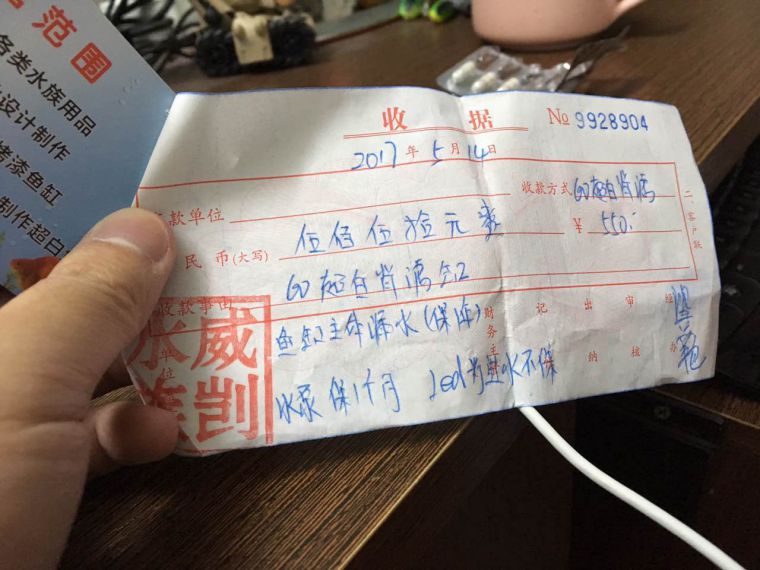 范围
各类水族用品
设计制作
烤漆鱼缸
制作超白
收据
No 9928904
2017年5月14日
款单位
收款方式 60超白背滤
民币(大写) 伍佰伍拾元整
¥ 550
收款事由 60超白背滤缸
二、客户联
鱼缸主命漏水(保修)
水泵保1个月 Led为进水不保
单位
财务主
记
出纳
审核
经办
威剀水族